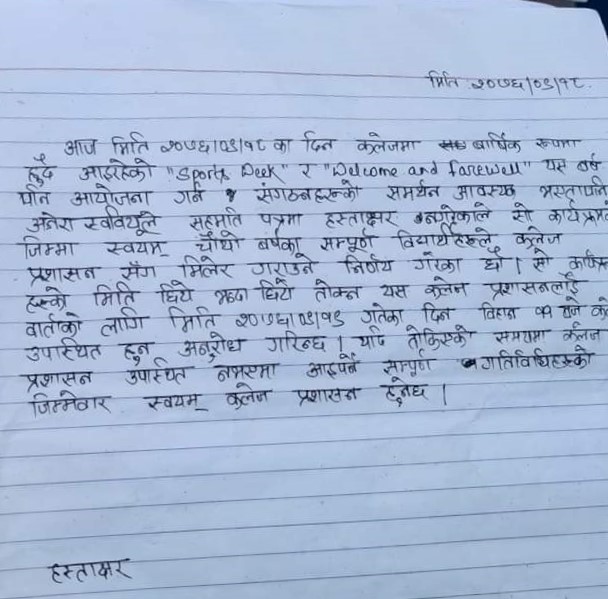 मिति २०७६/०९/१८
आज मिति २०७६/०९/१८ का दिन कलेजमा बार्षिक रूपमा
हुदै आइरहेको "Sports Week" र "Welcome and farewell" यस बर्ष
पनि आयोजना गर्न संगठनहरूको समर्थन आवस्यक
अनेरा स्ववियुले सहमति पत्रमा हस्ताक्षर नगरेकाले सो कार्यक्रम
जिम्मा स्वयम् चौथो बर्षका सम्पूर्ण विद्यार्थीहरूले कलेज
प्रशासन सँग मिलेर गराउने निर्णय गरेका छौ । सो
हरूको मिति छिटो भन्दा छिटो तोक्न यस कलेज प्रशासनलाई
वार्ताको लागि मिति २०७६/०९/१९ गतेका दिन विहान ११ बजे
उपस्थित हुन अनुरोध गरिन्छ । यदि तोकिएको समयमा कलेज
प्रशासन उपस्थित नभएमा आइपर्ने सम्पूर्ण गतिविधिहरूको
जिम्मेवार स्वयम् कलेज प्रशासन हुनेछ ।
हस्ताक्षर